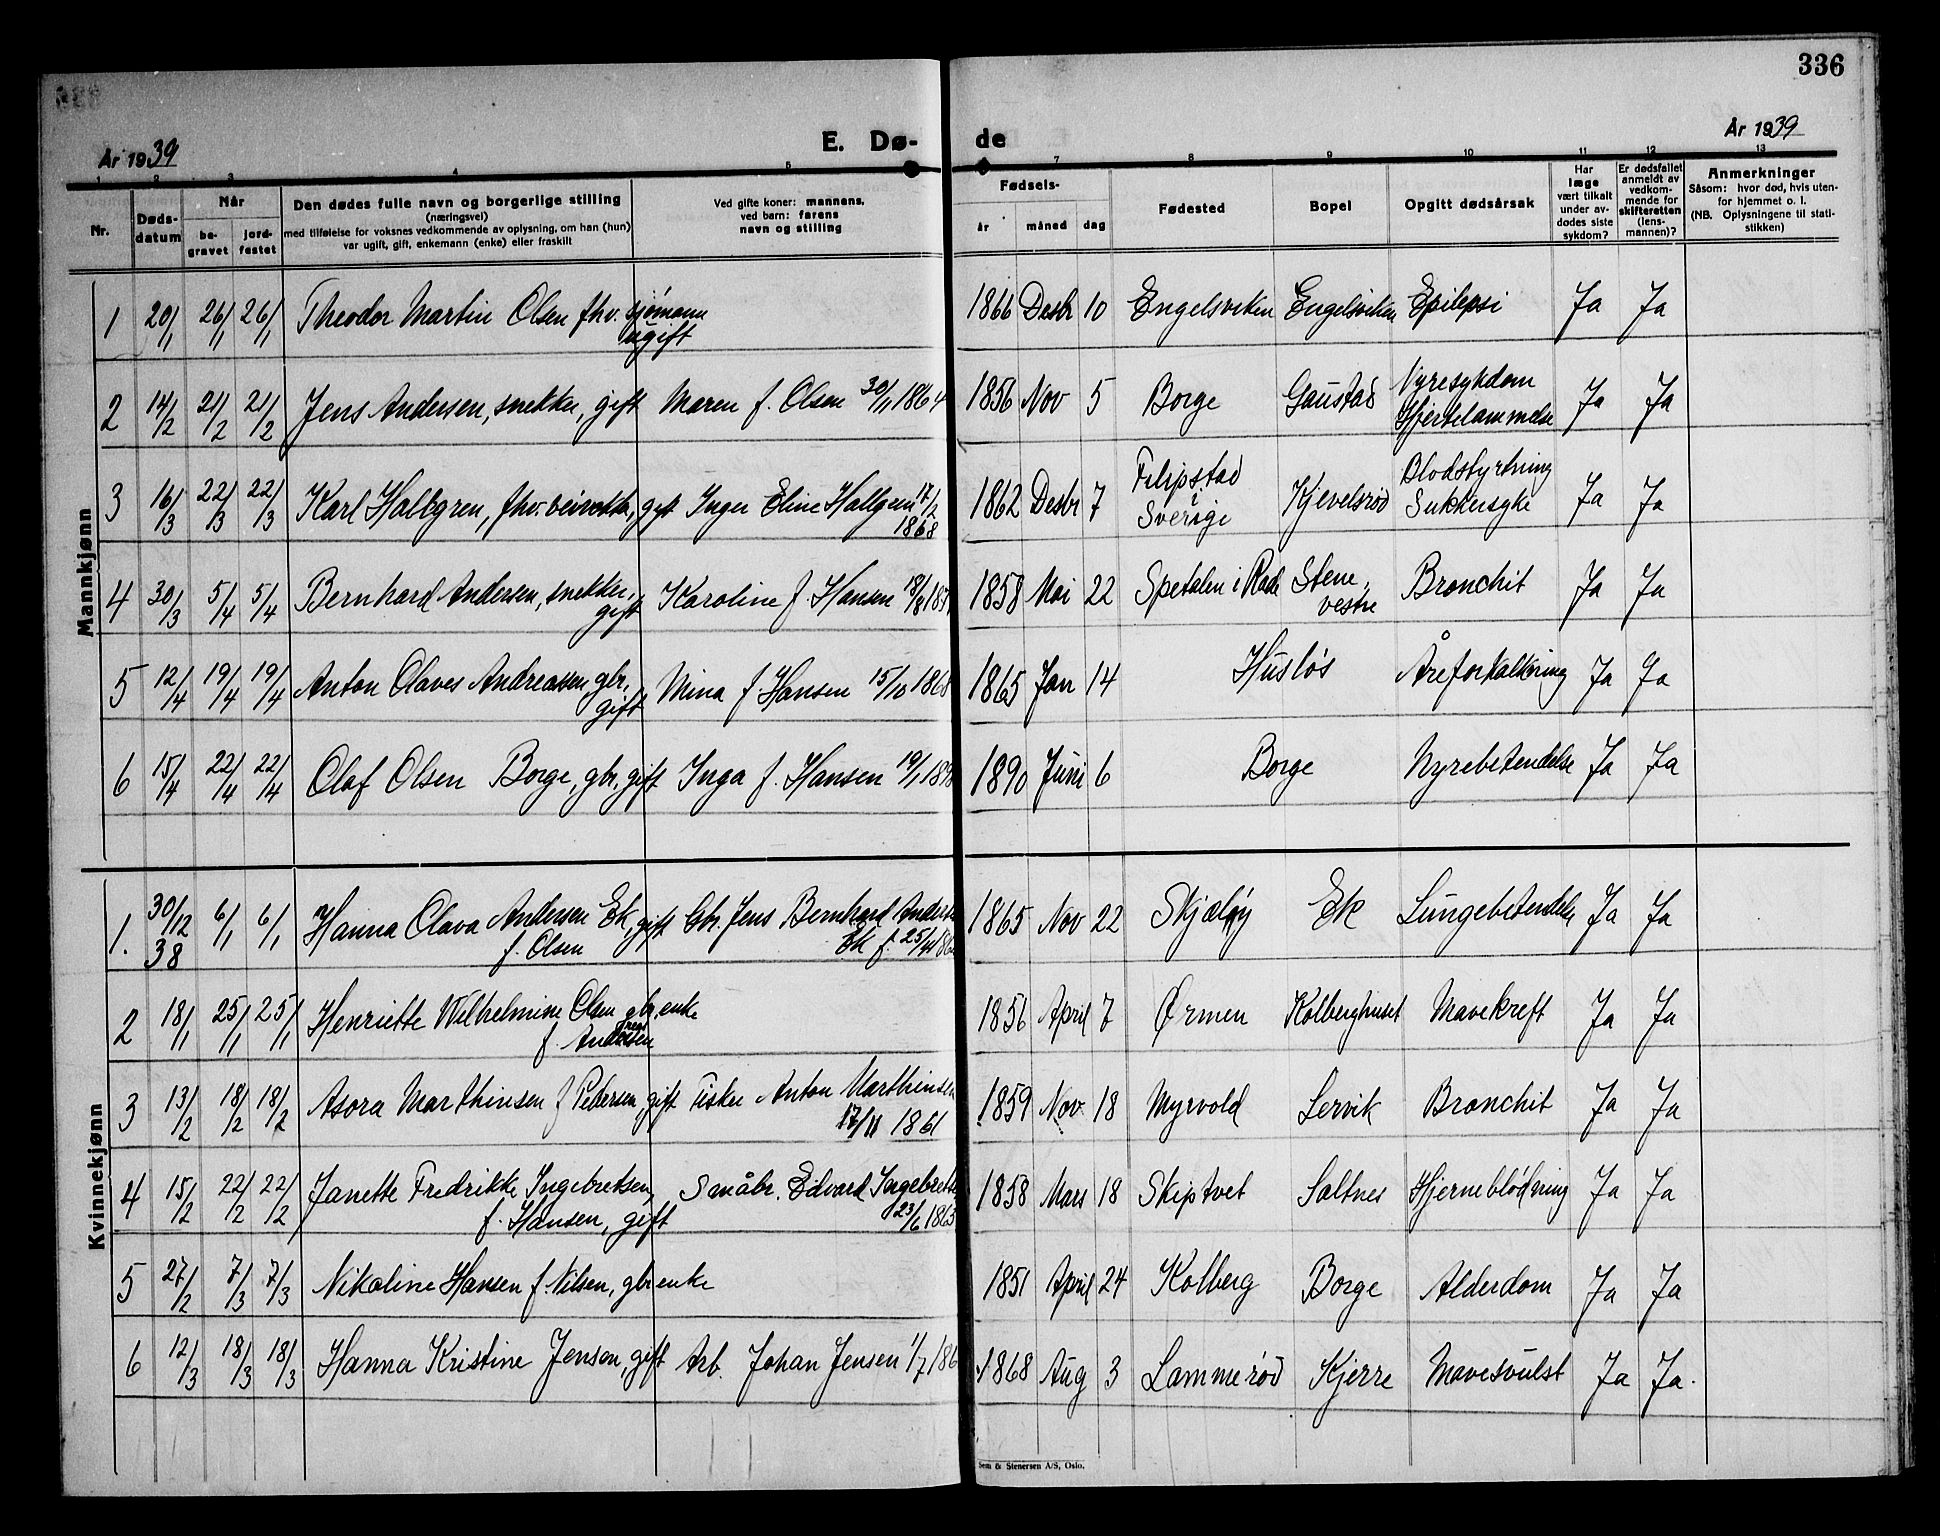 336
År 1939
E. Dø- de
År 1939
1 2 3 4 5 7 8 9 10 11 12 13
Nr.
Døds-
datum
Når
be-
gravet
jord-
festet
Den dødes fulle navn og borgerlige stilling
(næringsvei)
med tilføielse for voksnes vedkommende av oplysning, om han (hun)
var ugift, gift, enkemann (enke) eller fraskilt
Ved gifte koner: mannens,
ved barn: farens
navn og stilling
Fødsels-
år måned dag
Fødested
Bopel
Opgitt dødsårsak
Har
læge
vært tilkalt
under av-
dødes siste
sykdom?
Er dødsfallet
anmeldt av
vedkom-
mende for
skifteretten
(lens-
mannen)?
Anmerkninger
Såsom: hvor død, hvis uten-
for hjemmet o. l.
(NB. Oplysningene til stati-
stikken)
Mannkjønn
1 20/1 26/1 26/1 Theodor Martin Olsen fhv. sjömann 1866 Desbr 10 Engelsviken Engelsviken Epilepsi Ja Ja
ugift
2 14/2 21/2 21/2 Jens Andersen, snekker, gift Maren f. Olsen 30/11 1864 1856 Nov 5 Borge Gaustad Nyresykdom Ja Ja
Hjertelammelse
3 16/3 22/3 22/3 Karl Hallgren, fhv. veivokter, gift Inger Eline Hallgren 17/2 1862 Desbr 7 Filipstad Kjevelsrød Blodstyrtning Ja Ja
1868 i Sverige Sukkersyke
4 30/3 5/4 5/4 Bernhard Andersen, snekker, Karoline f. Hansen 18/8 187 1858 Mai 22 Spetalen i Rade Stene, Bronchit Ja Ja
gift vestre
5 12/4 19/4 19/4 Anton Olaves Andreassen gbr, Mina f. Hansen 15/10 1868 1865 Jan 14 Husløs Åreforkalkning Ja Ja
gift
6 15/4 22/4 22/4 Olaf Olsen Borge, gbr, gift Inga f. Hansen 19/1 189 1890 Juni 6 Borge Nyrebetendelse Ja Ja
Kvinnekjønn
1. 30/12 6/1 6/1 Hanna Olava Andersen Ek, gift Gbr. Jens Bernhard Anders 1865 Nov 22 Skjæløy Ek Lungebetendelse Ja Ja
38 f. Olsen Ek f. 25/ 186
2 18/1 25/1 25/1 Henriette Wilhelmine Olsen gbr. enke 1856 April 7 Ørmen Kolberghuset Mavekreft Ja Ja
f. Andersen
3 13/2 18/2 18/2 Asora Marthinsen f Pedersen, gift Fisker Anton Marthinsen 1859 Nov. 18 Myrvold Lervik Bronchit Ja Ja
17/11 1861
4 15/2 22/2 22/2 Janette Fredrikke Ingebretsen, Småbr. Edvard Ingebrets 1858 Mars 18 Skiptvet Saltnes Hjerneblødning Ja Ja
f. Hansen, gift 23/6 1863
5 27/2 7/3 7/3 Nikoline Hansen f. Nilsen, gbr enke 1851 April 24 Kolberg Borge Alderdom Ja Ja
6 12/3 18/3 18/3 Hanna Kristine Jensen, gift Arb. Johan Jensen 1/7 186 1868 Aug 3 Lammerød Kjerre Mavesvulst Ja Ja.
Sem & Stenersen A/S, Oslo.